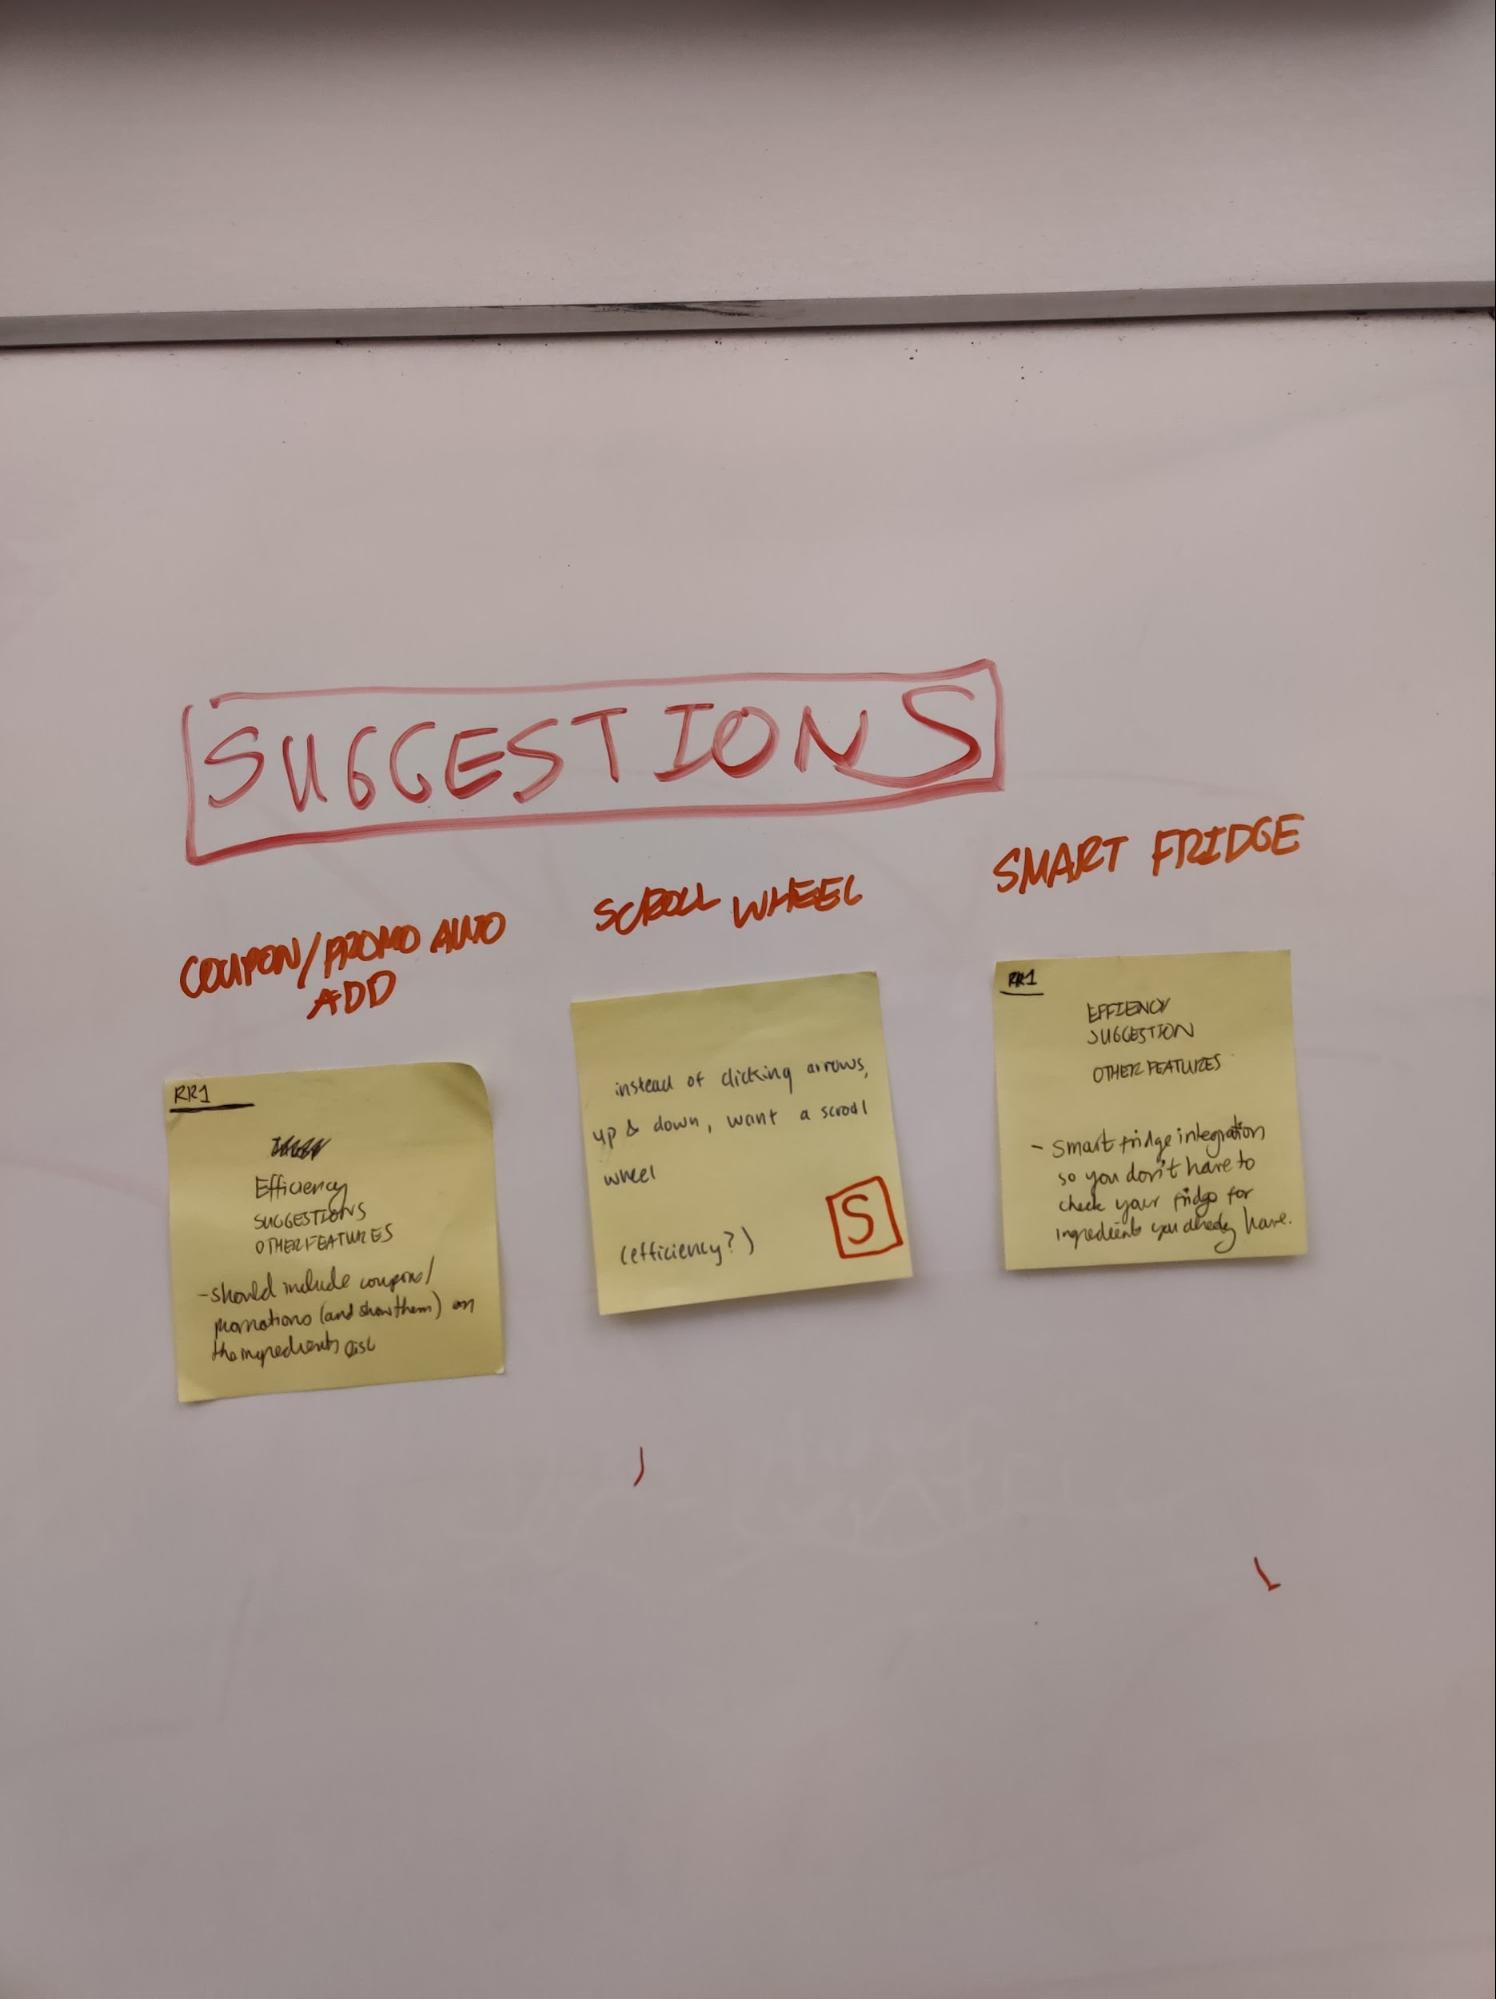 SUGGESTIONS
COUPON/PROMO AUTO
ADD
RR1
Efficiency
SUGGESTIONS
OTHER FEATURES
- should include coupons/
promotions (and show them) on
the ingredients list
SCROLL WHEEL
instead of clicking arrows,
up & down, want a scroll
wheel
(efficiency?)
S
SMART FRIDGE
RR1
EFFIENCY
SUGGESTION
OTHER FEATURES
- Smart fridge integration
so you don't have to
check your fridge for
ingredients you already have.